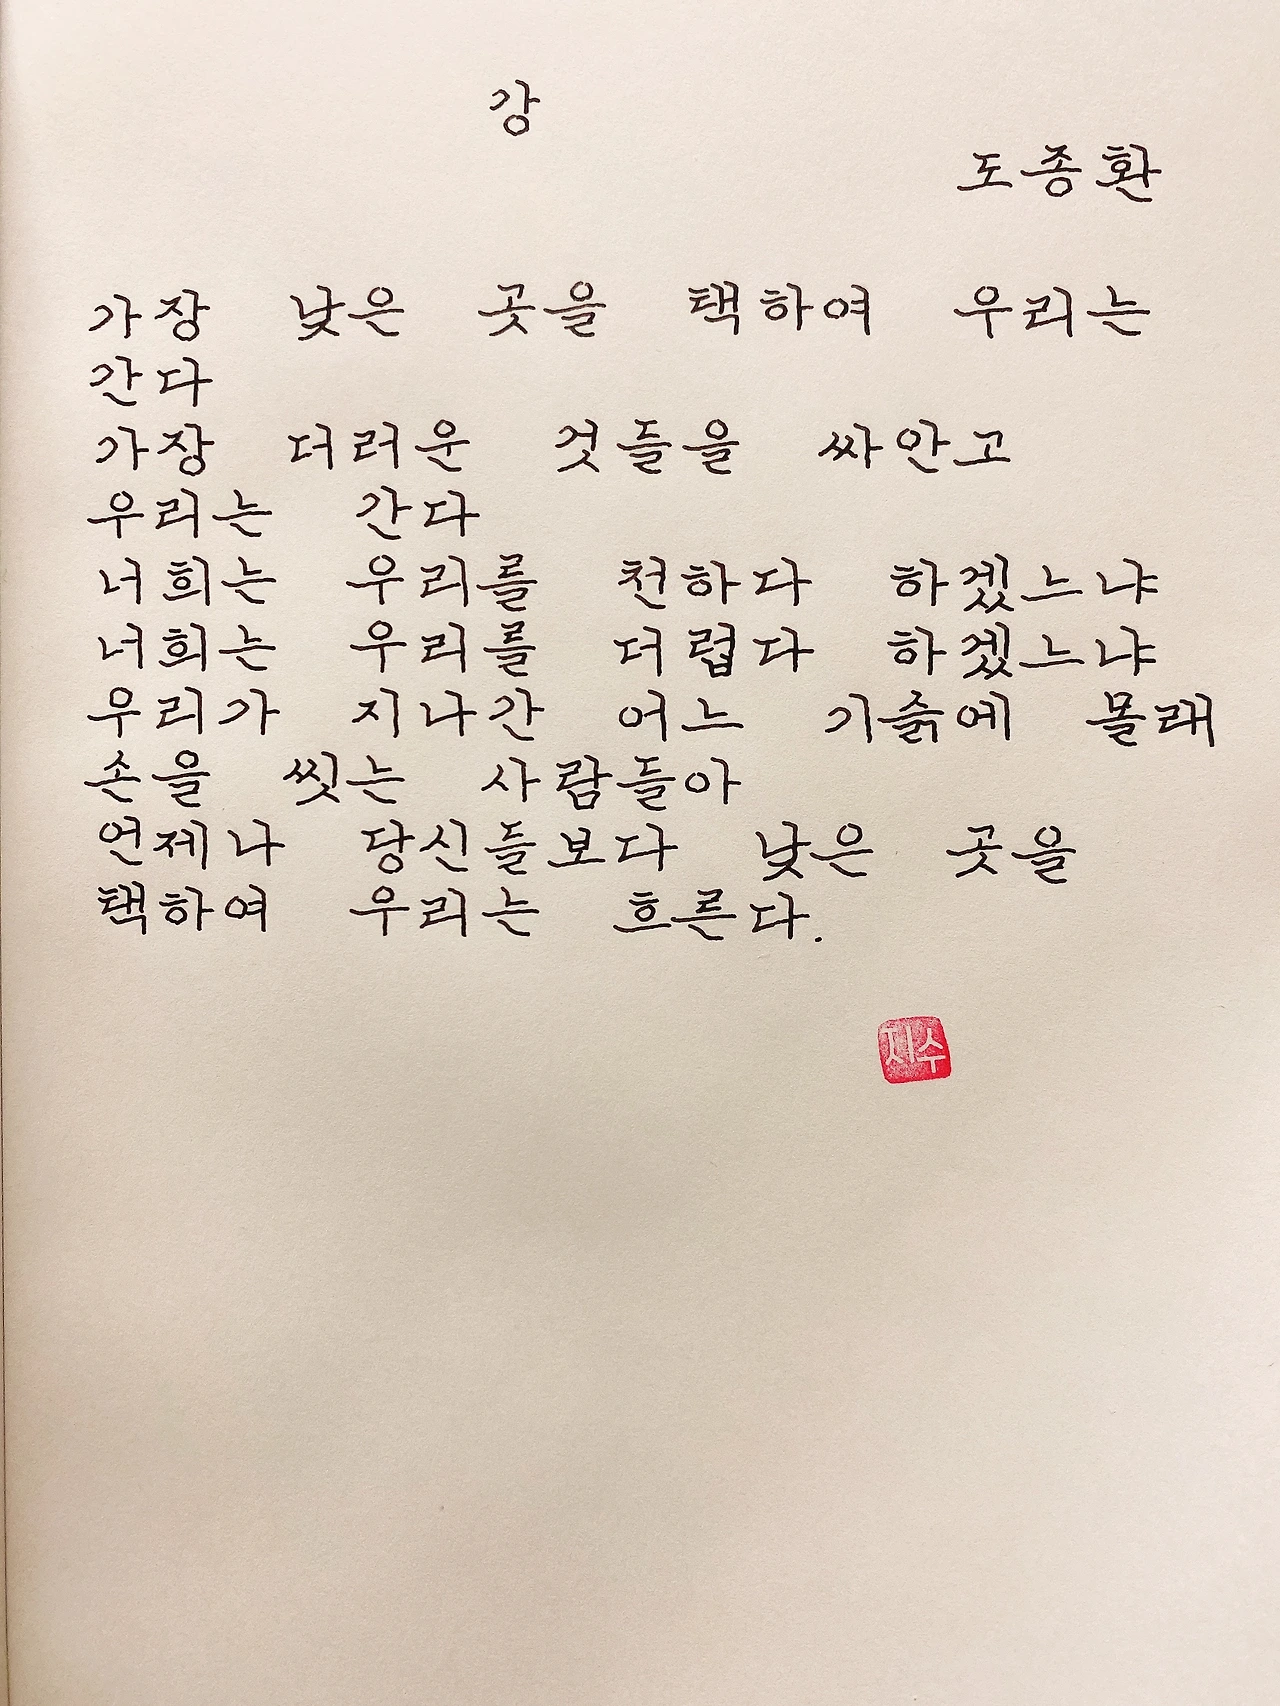 강
도종환
가장 낮은 곳을 택하여 우리는
간다
가장 더러운 것들을 싸안고
우리는 간다
너희는 우리를 천하다 하겠느냐
너희는 우리를 더럽다 하겠느냐
우리가 지나간 어느 기슭에 몰래
손을 씻는 사람들아
언제나 당신들보다 낮은 곳을
택하여 우리는 흐른다.